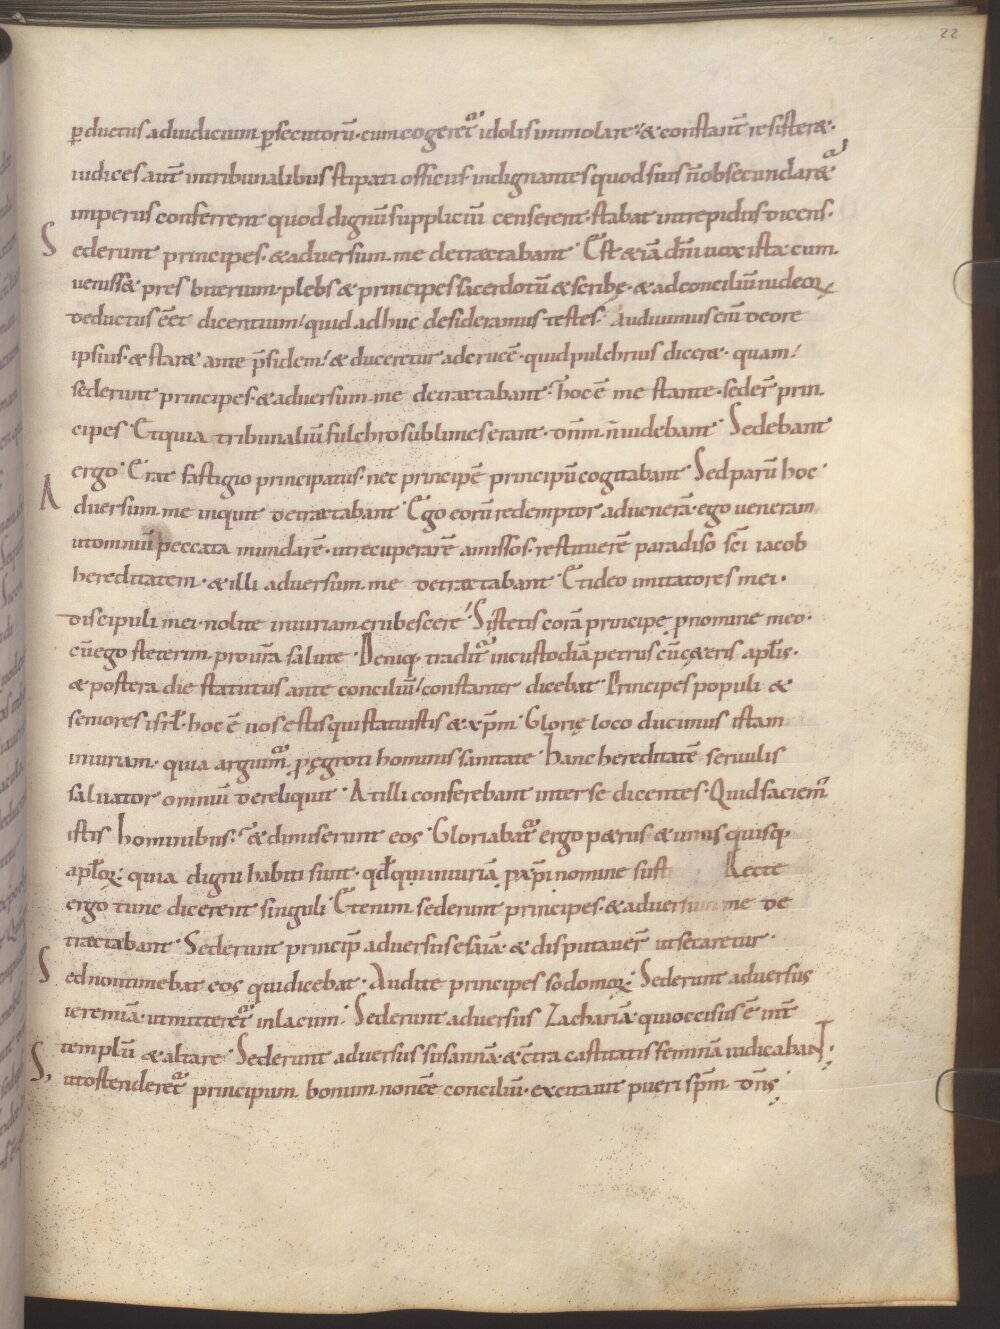 22
ꝑductus adiudicium ꝑsecutorū· cum cogeret᷑ idolis immolare·' & constant̄ resister&·
iudices aut̄ intribunalibus stipati officiis· indignantes quod suis n̄ obsecundar&᷑
imperiis conferrent quod dignū suppliciū censerent· stabat intrepidus dicens·
Sederunt principes· & adversum me detractabant· Est & iā dn̄i vox ista· cum
veniss& presbiterium· plebs & principes sacerdotū & scribę· & ad conciliū iudeoꝝ
deductus eēt dicentium·' quid adhuc desideramus testes·' Audiuimus eni̅ de ore
ipsius· & star& ante p̄sidem·' & duceretur ad crucē· quid pulchrius dicer&· quam·'
sederunt principes· & adversum me detractabant· hoc ē me stante· seder̄ prin
cipes· Et quia tribunaliū fulchro sublimes erant· dn̄m n̄ uidebant· Sedebant
ergo· Erat fastigio principatus· nec principē principū cogitabant· Sed parū hoc·
Adversum me inquit detractabant· Ego eorū redemptor aduenerā· ego veneram
ut omniū peccata mundarē· ut recuperarē amissos· restituerē paradiso sc̄i iacob
hereditatem· & illi adversum me detractabant· Et ideo imitatores mei·
discipuli mei· nolite iniuriam erubescere·' Si stetis corā principe ꝓ nomine meo·
cū ego steterim pro vr̄a salute· Deniq· tradit᷑ in custodiā petrus cū cęteris apl̄is·
& postera die statutus ante conciliū·' constanter dicebat· Principes populi &
seniores isrl̄· hoc ē vos estis qui statuistis & xp̄m· Glorię loco ducimus istam
iniuriam· quia arguim᷑ ꝓ ęgroti hominis sanitate· Hanc hereditatē servulis
salvator omniū dereliquit· At illi conferebant inter se dicentes· Quid faciem᷑
istis hominibus·' & dimiserunt eos· Gloriabat᷑ ergo petrus & unus quisq·
apl̄oꝝ· quia digni habiti sunt· qd̄ qui iniuriā ꝓ xp̄i nomine susti Recte
ergo tunc dicerent singuli· Etenim sederunt principes· & adversum me de
tractabant· Sederunt princip̄ adversus esaiā· & disputaver̄ ut secaretur·
Sed non timebat eos qui dicebat· Audite principes sodomoꝝ· Sederunt adversus
ieremiā· ut mitteret᷑ in lacum· Sederunt adversus Zachariā· qui occisus ē int̄
templū & altare· Sederunt adversus susannā· & c̄tra castitatis feminā iudicabant·
Sut ostenderet᷑ principum bonum non eē conciliū· excitavit pueri sp̄m dn̄s